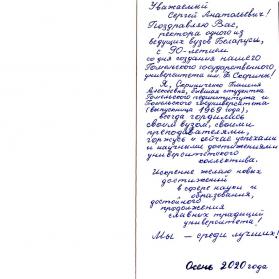 Уважаемый
Сергей Анатольевич!
Поздравляю Вас,
ректора одного из
ведущих вузов Беларуси,
с 90-летием
со дня создания нашего
Гомельского государственного
университета им. Ф. Скорины!
Я, Татьяна
Алексеевна, бывшая студентка
Гомельского пединститута и
Гомельского госуниверситета
(выпускница 1969 года),
всегда гордилась
своим вузом, своими
преподавателями,
горжусь и сейчас успехами
и научными достижениями
университетского
коллектива.
Искренне желаю новых
достижений
в сфере науки и
образования,
достойного
продолжения
славных традиций
университета!
Мы – среди лучших!
Осень 2020 года